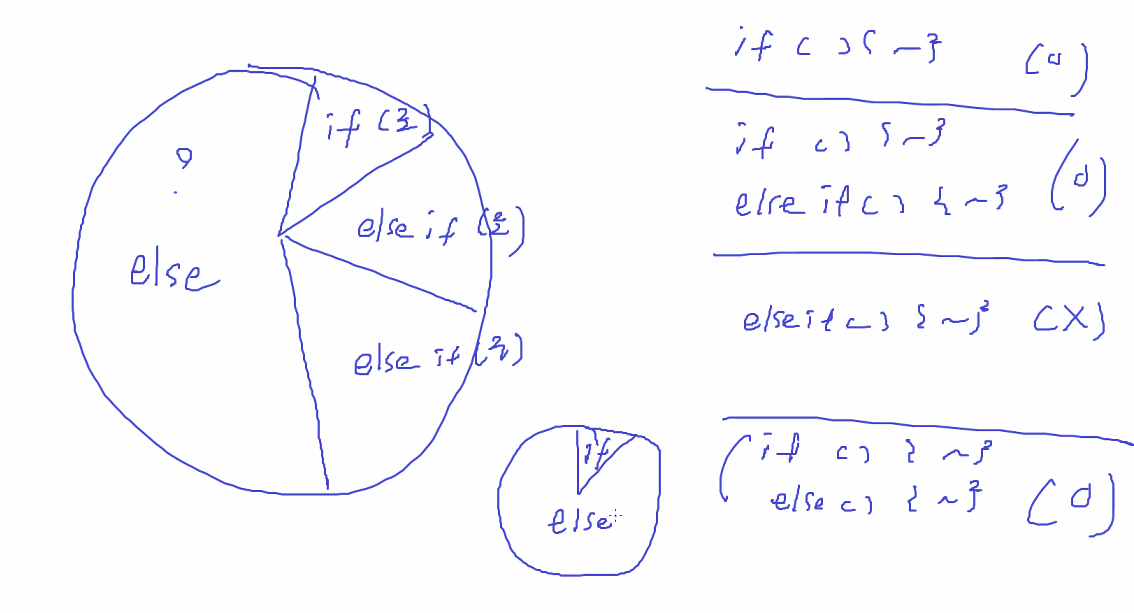 if (조)
else if (조)
else if (조)
?
else
if
else
if ( ) { ~ } (o)
if ( ) { ~ }
else if ( ) { ~ } (o)
else if ( ) { ~ } (X)
if ( ) { ~ }
else ( ) { ~ } (o)